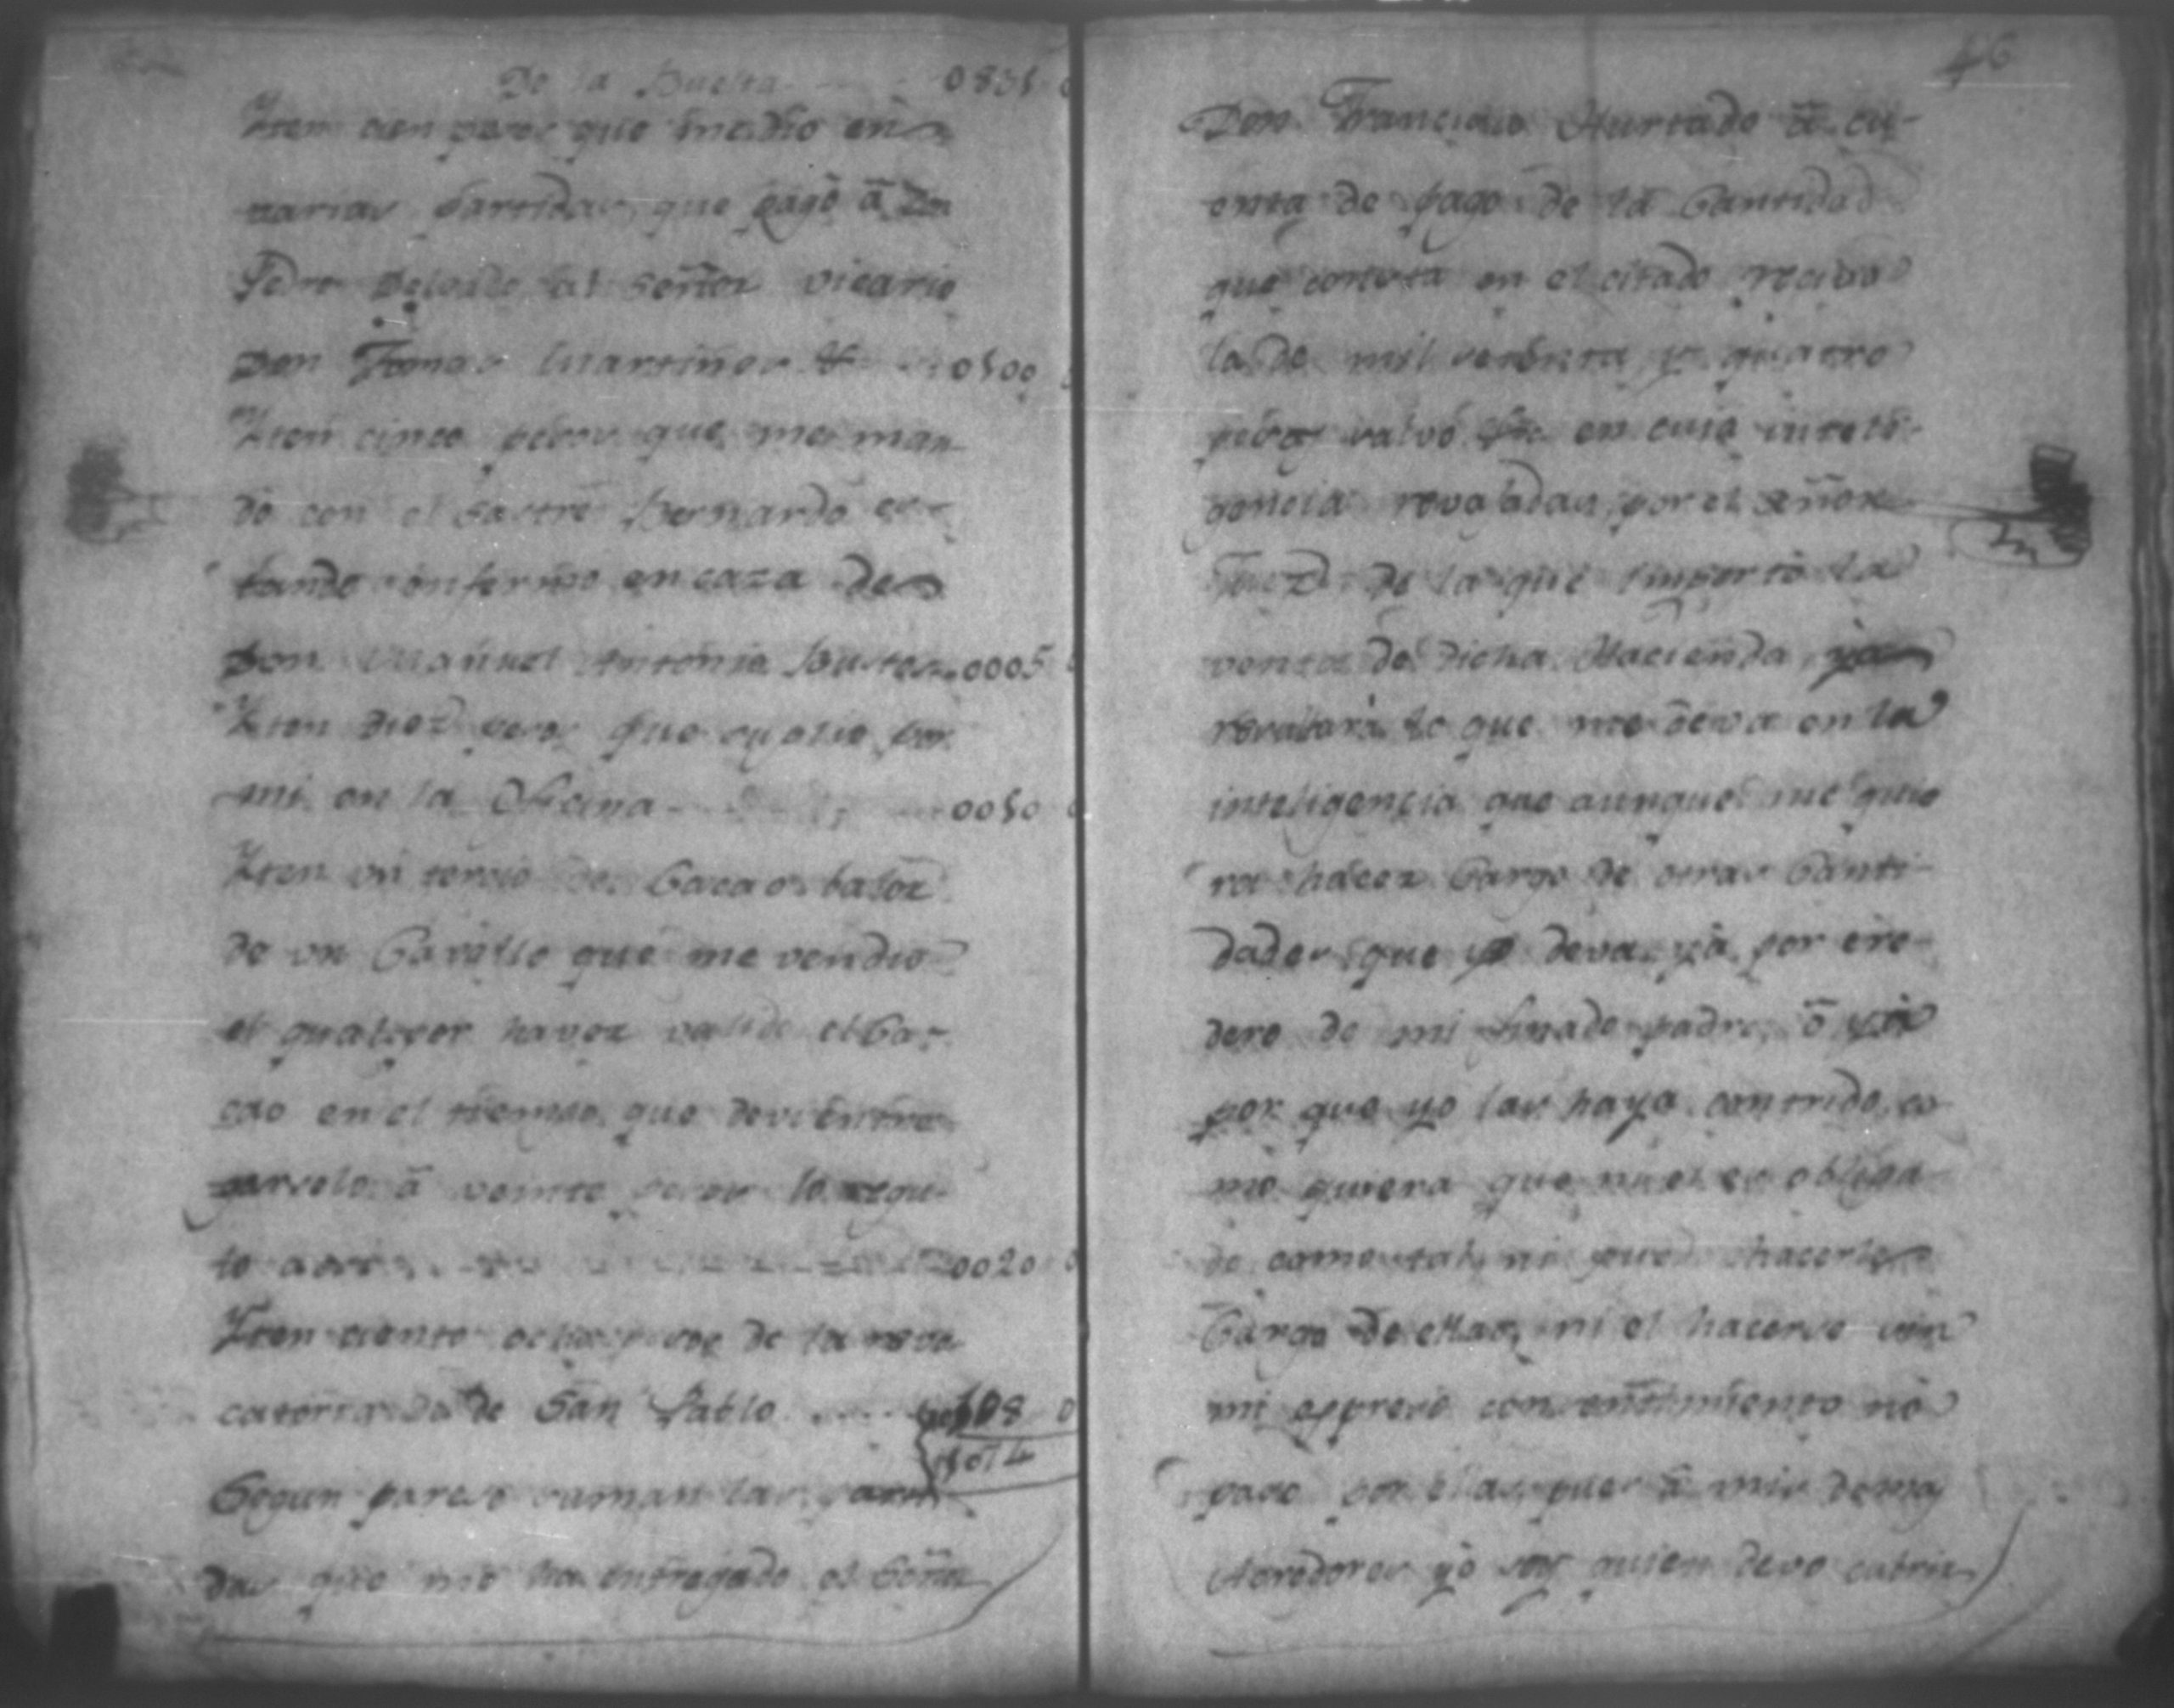 De la Buelta 0831 0
Yten cien pesos que me dio en
varias partidas que pagó â Dn
Pedro al señor vicario
Don Tomas Martines 0100
Yten cinco pesos que me man
dó con el sastre Bernardo es-
tando enfermo en caza de
Don Manuel Antonio Bustos 0005
Yten diez pesos que suplio por
mi en la Oficina 0010 0
Yten un tercio de Cacao balor
de un Cavallo que me vendio
el qual por haver valido el Ca-
cao en el tiempo que devi entre
garselo â veinte pesos lo regu-
lo a 0020 0
Yten ciento ocho pesos de la
de San Pablo 108 0
1074
Segun parese suman las parti
das que me ha entregado el Señor
46
Don Francisco Hurtado â cu-
enta de pago de la Cantidad
que consta en el citado recivo
la de mil setenta y quatro
pesos salvo en cuia inteli-
gencia por el señor
Juez de la que importó la
venta de dicha Hacienda
resultará lo que me deva en la
inteligencia que aunque me quie
ra hacer Cargo de otras Canti-
dades que yo deva ya por ere-
dero de mi finado padre, ô ya
por que yo las haya contrido, co
mo quiera que ni el es obliga
do como tal, ni puedo hacerle
Cargo de ellas, ni el hacerse sin
mi expreso consentimiento no
pago por ellas, pues â mis demas
Acredores yo soy quien devo cubrir